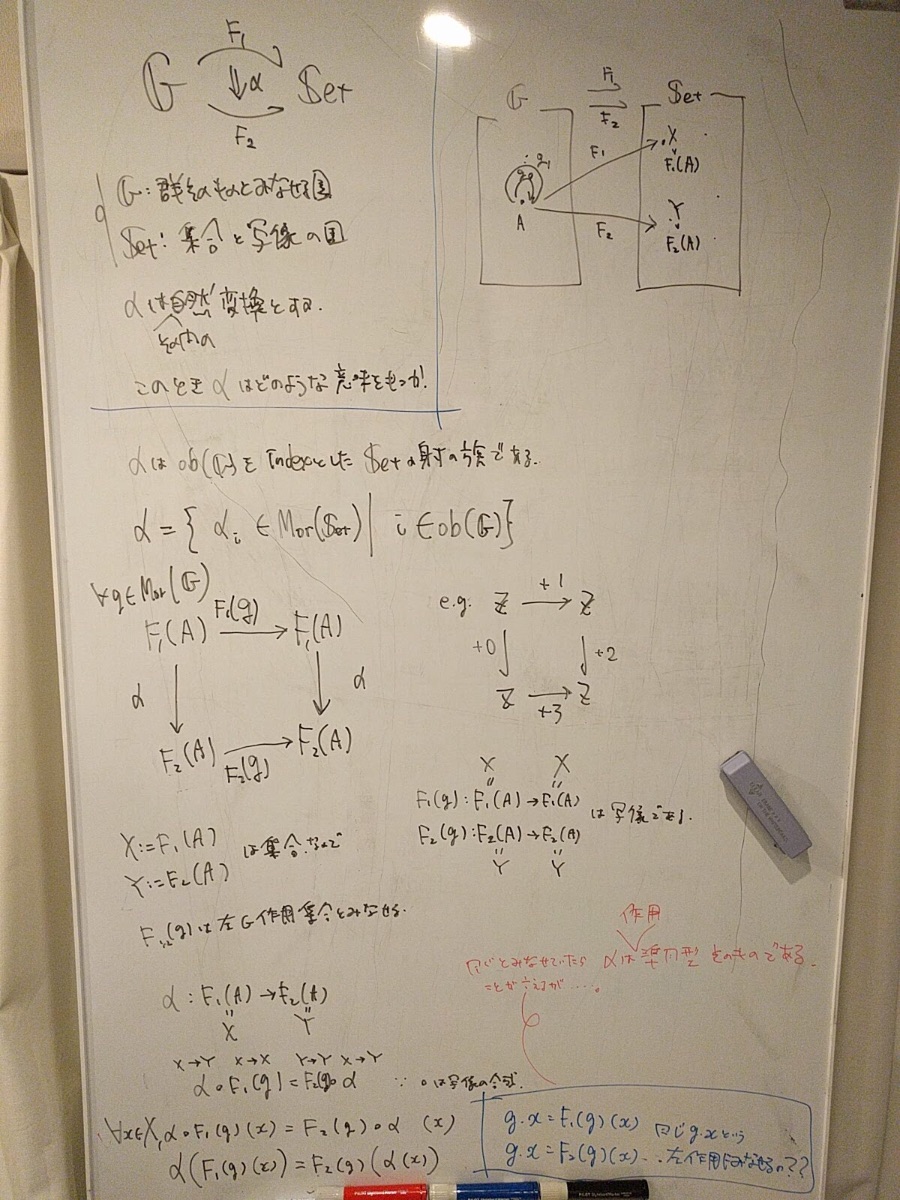 F₁
𝔾 ⇓α 𝕊et
F₂
𝔾: 群そのものとみなせる圏
𝕊et: 集合と写像の圏
αは自然変換とする.
このときαはどのような意味をもつか!
𝔾 F₁ F₂ 𝕊et
g g₁
A
F₁
F₂
X
F₁(A)
Y
F₂(A)
αは ob(𝔾)を Indexとした 𝕊etの射の族である.
α = { αᵢ ∈ Mor(𝕊et) | i ∈ ob(𝔾)}
∀g∈Mor(𝔾)
F₁(A) F₁(g) → F₁(A)
α ↓ ↓ α
F₂(A) F₂(g) → F₂(A)
e.g. ℤ +1 → ℤ
+0 ↓ ↓ +2
ℤ +3 → ℤ
X X
〃 〃
F₁(g): F₁(A) → F₁(A)
F₂(g): F₂(A) → F₂(A)
は写像である.
〃 〃
Y Y
X:=F₁(A)
Y:=F₂(A)
は集合なので
F₁,₂(g)は左G作用集合とみなせる.
作用
同じとみなせていたら αは準同型そのものである.
ことが言えるが……。
α: F₁(A) → F₂(A)
〃 〃
X Y
X→Y X→X Y→Y X→Y
α∘F₁(g) = F₂(g)∘α ∵ ∘は写像の合成.
∀x∈X, α∘F₁(g)(x) = F₂(g)∘α (x)
α(F₁(g)(x)) = F₂(g)(α(x))
g.x = F₁(g)(x) 同じg.xという
g.x = F₂(g)(x) … 左作用とみなせるの??